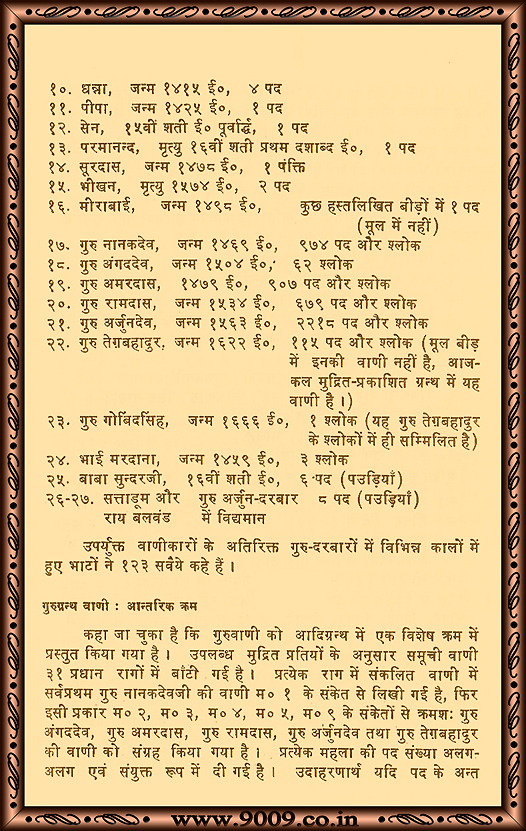 १०. धन्ना, जन्म १४१५ ई०, ४ पद
११. पीपा, जन्म १४२५ ई०, १ पद
१२. सेन, १५वीं शती ई० पूर्वार्द्ध, १ पद
१३. परमानन्द, मृत्यु १६वीं शती प्रथम दशाब्द ई०, १ पद
१४. सूरदास, जन्म १४७८ ई०, १ पंक्ति
१५. भीखन, मृत्यु १५७४ ई०, २ पद
१६. मीराबाई, जन्म १४९८ ई०, कुछ हस्तलिखित बीड़ों में १ पद
(मूल में नहीं)
१७. गुरु नानकदेव, जन्म १४६९ ई०, ९७४ पद और श्लोक
१८. गुरु अंगददेव, जन्म १५०४ ई०, ६२ श्लोक
१९. गुरु अमरदास, १४७९ ई०, ९०७ पद और श्लोक
२०. गुरु रामदास, जन्म १५३४ ई०, ६७९ पद और श्लोक
२१. गुरु अर्जुनदेव, जन्म १५६३ ई०, २२१८ पद और श्लोक
२२. गुरु तेग़बहादुर, जन्म १६२२ ई०, ११५ पद और श्लोक (मूल बीड़
में इनकी वाणी नहीं है, आज-
कल मुद्रित-प्रकाशित ग्रन्थ में यह
वाणी है।)
२३. गुरु गोबिंदसिंह, जन्म १६६६ ई०, १ श्लोक (यह गुरु तेग़बहादुर
के श्लोकों में ही सम्मिलित है)
२४. भाई मरदाना, जन्म १४५९ ई०, ३ श्लोक
२५. बाबा सुन्दरजी, १६वीं शती ई०, ६ पद (पउड़ियाँ)
२६-२७. सत्ताडूम और गुरु अर्जुन-दरबार ८ पद (पउड़ियाँ)
राय बलवंड में विद्यमान
उपर्युक्त वाणीकारों के अतिरिक्त गुरु-दरबारों में विभिन्न कालों में
हुए भाटों ने १२३ सवैये कहे हैं।
गुरुग्रन्थ वाणी : आन्तरिक क्रम
कहा जा चुका है कि गुरुवाणी को आदिग्रन्थ में एक विशेष क्रम में
प्रस्तुत किया गया है। उपलब्ध मुद्रित प्रतियों के अनुसार समूची वाणी
३१ प्रधान रागों में बाँटी गई है। प्रत्येक राग में संकलित वाणी में
सर्वप्रथम गुरु नानकदेवजी की वाणी म० १ के संकेत से लिखी गई है, फिर
इसी प्रकार म० २, म० ३, म० ४, म० ५, म० ९ के संकेतों से क्रमशः गुरु
अंगददेव, गुरु अमरदास, गुरु रामदास, गुरु अर्जुनदेव तथा गुरु तेग़बहादुर
की वाणी को संग्रह किया गया है। प्रत्येक महला की पद संख्या अलग-
अलग एवं संयुक्त रूप में दी गई है। उदाहरणार्थ यदि पद के अन्त
www.9009.co.in